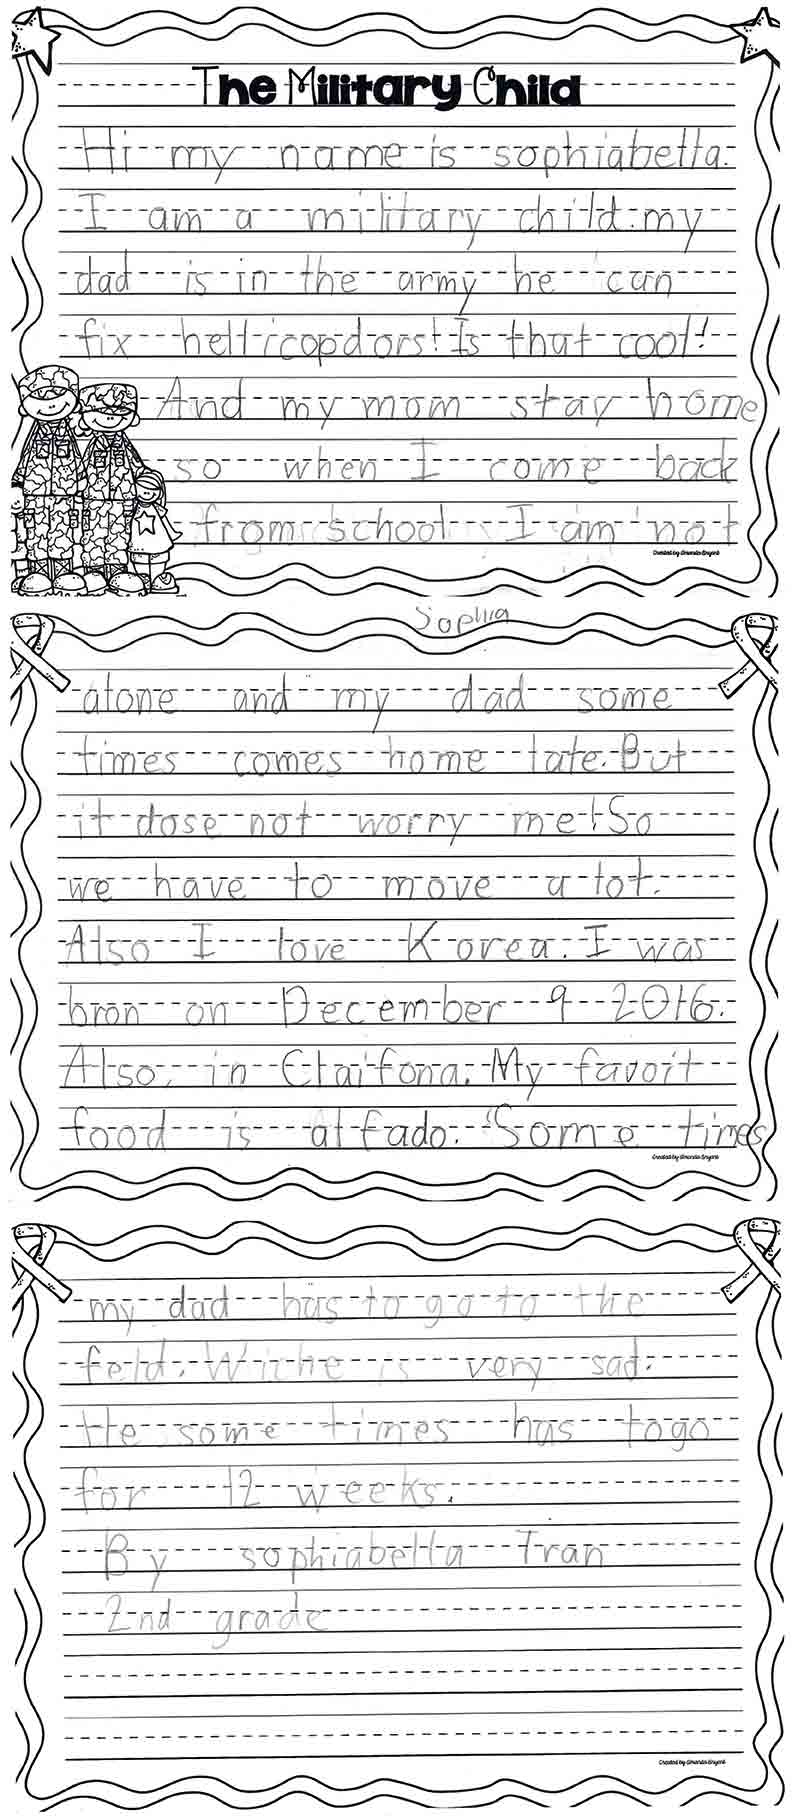 The Military Child
Hi my name is sophiabella.
I am a military child. my
dad is in the army he can
fix hellicopdors! Is that cool!
And my mom stay home
so when I come back
from school I am not
Created by Amanda Bryant
Sophia
alone and my dad some
times comes home late. But
it dose not worry me! So
we have to move a lot.
Also I love Korea. I was
bron on December 9 2016.
Also, in Claifona. My favoit
food is alfado. Some times
Created by Amanda Bryant
my dad has to go to the
feld. Wiche is very sad.
He some times has to go
for 12 weeks.
By sophiabella Tran
2nd grade
Created by Amanda Bryant